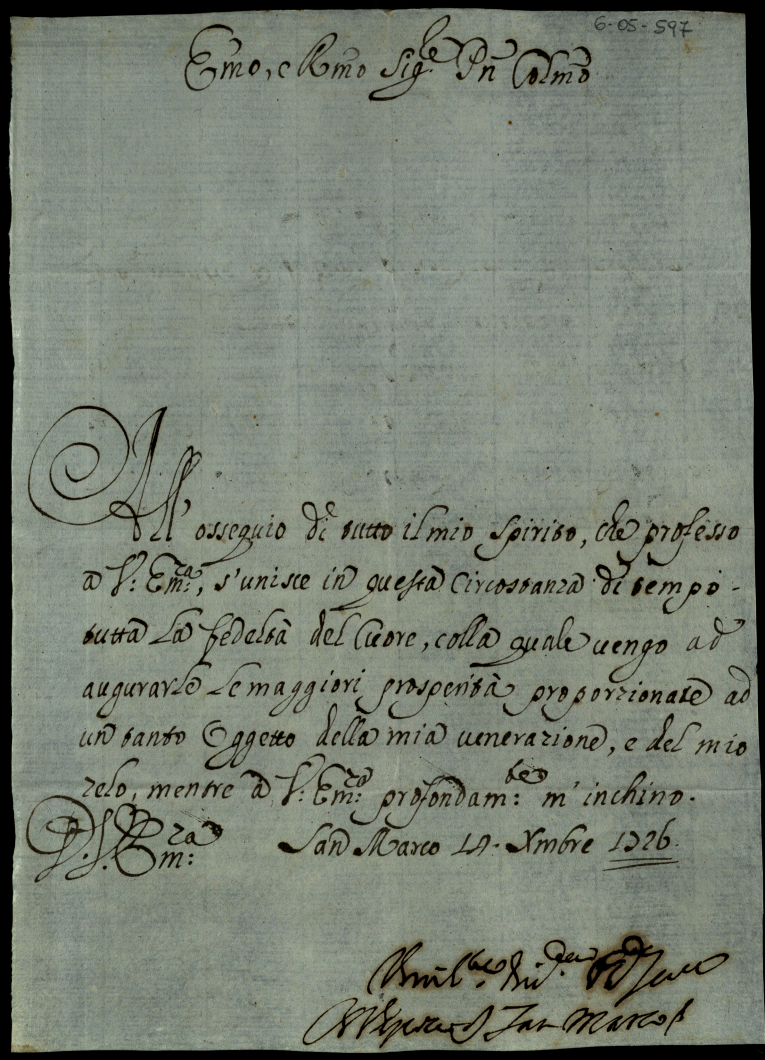 6-05-597
Emo, e Rmo Sig.re Pñ Colmo
All' ossequio di tutto il mio Spirito, che professo
a V: Em:za, s'unisce in questa Circostanza di tempo
tutta La fedeltà del Cuore, colla quale vengo ad
augurarle Le maggiori prosperità proporzionate ad
un tanto Oggetto della mia venerazione, e del mio
zelo, mentre a V: Em:za profondam:te m'inchino.
D. V. Em:za San Marco 14. Xmbre 1726.
San Marco